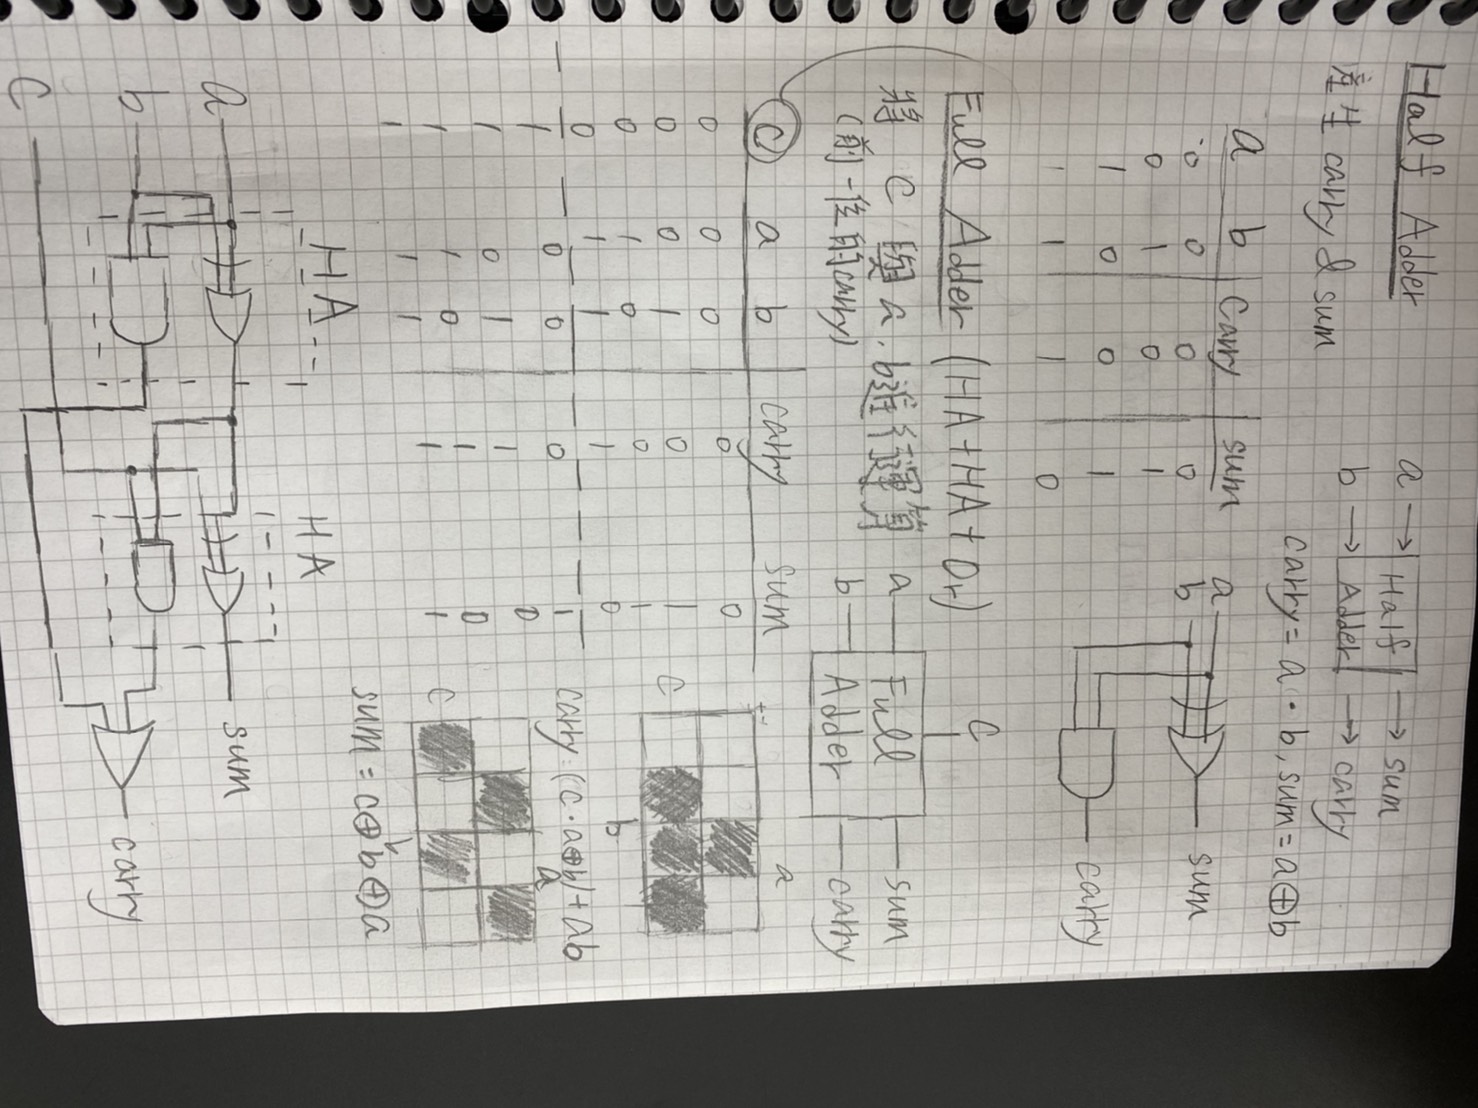 Half Adder
a → Half → sum
b → Adder → carry
產生 carry & sum
carry = a · b, sum = a⊕b
a b carry sum
0 0 0 0
0 1 0 1
1 0 0 1
1 1 1 0
a
b
sum
carry
Full Adder (HA+HA+Or)
將 C 與 a, b進行運算
(前一位的carry)
C
a Full sum
b Adder carry
C a b carry sum
0 0 0 0 0
0 0 1 0 1
0 1 0 0 1
0 1 1 1 0
1 0 0 0 1
1 0 1 1 0
1 1 0 1 0
1 1 1 1 1
a
C
b
carry: (C·a⊕b)+ab
a
C
b
sum = c⊕b⊕a
HA
HA
a
sum
b
carry
C